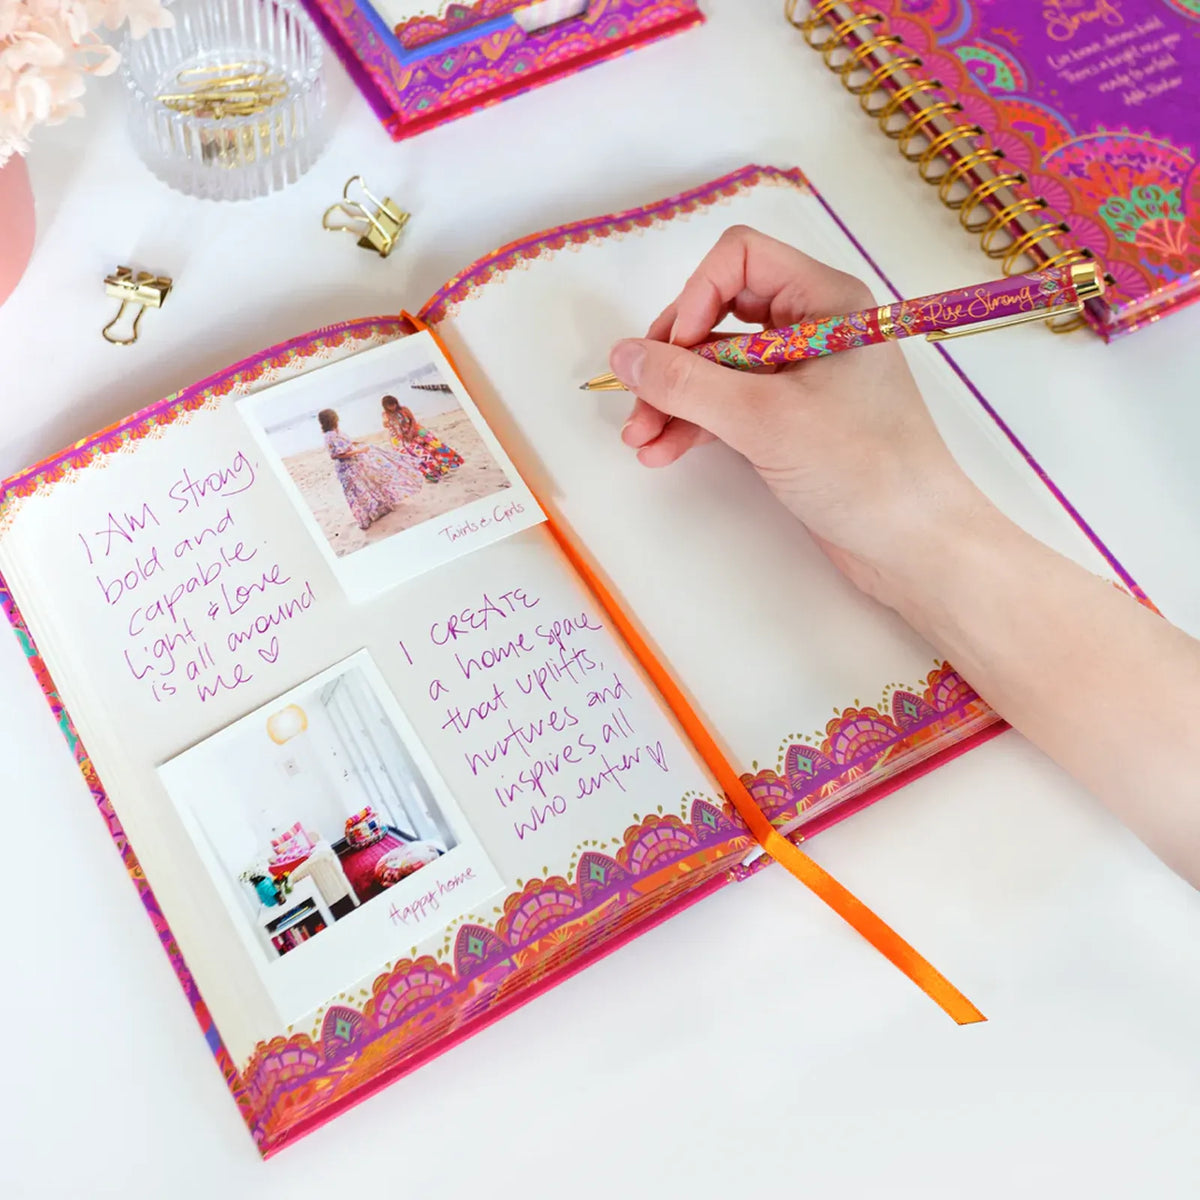 I AM strong,
bold and
capable.
Light & Love
is all around
me ♡
Twirls & Girls
I CREATE
a home space
that uplifts,
nurtures and
inspires all
who enter ♡
Happy home
Rise Strong
Strong
ready to unfold